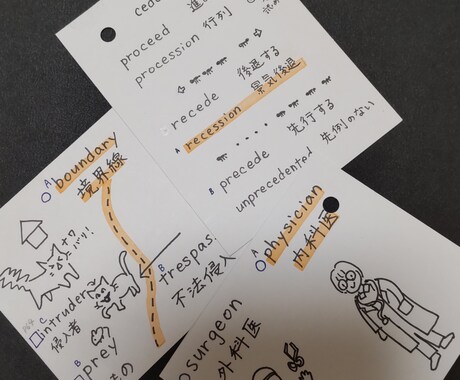 proceed
procession 行列
recede 後退する
A recession 景気後退
precede 先行する
B unprecedented 先例のない
A boundary
境界線
ナワバリ!
B trespas
不法侵入
C intruder
侵入者
B prey
A physician
内科医
surgeon
外科医